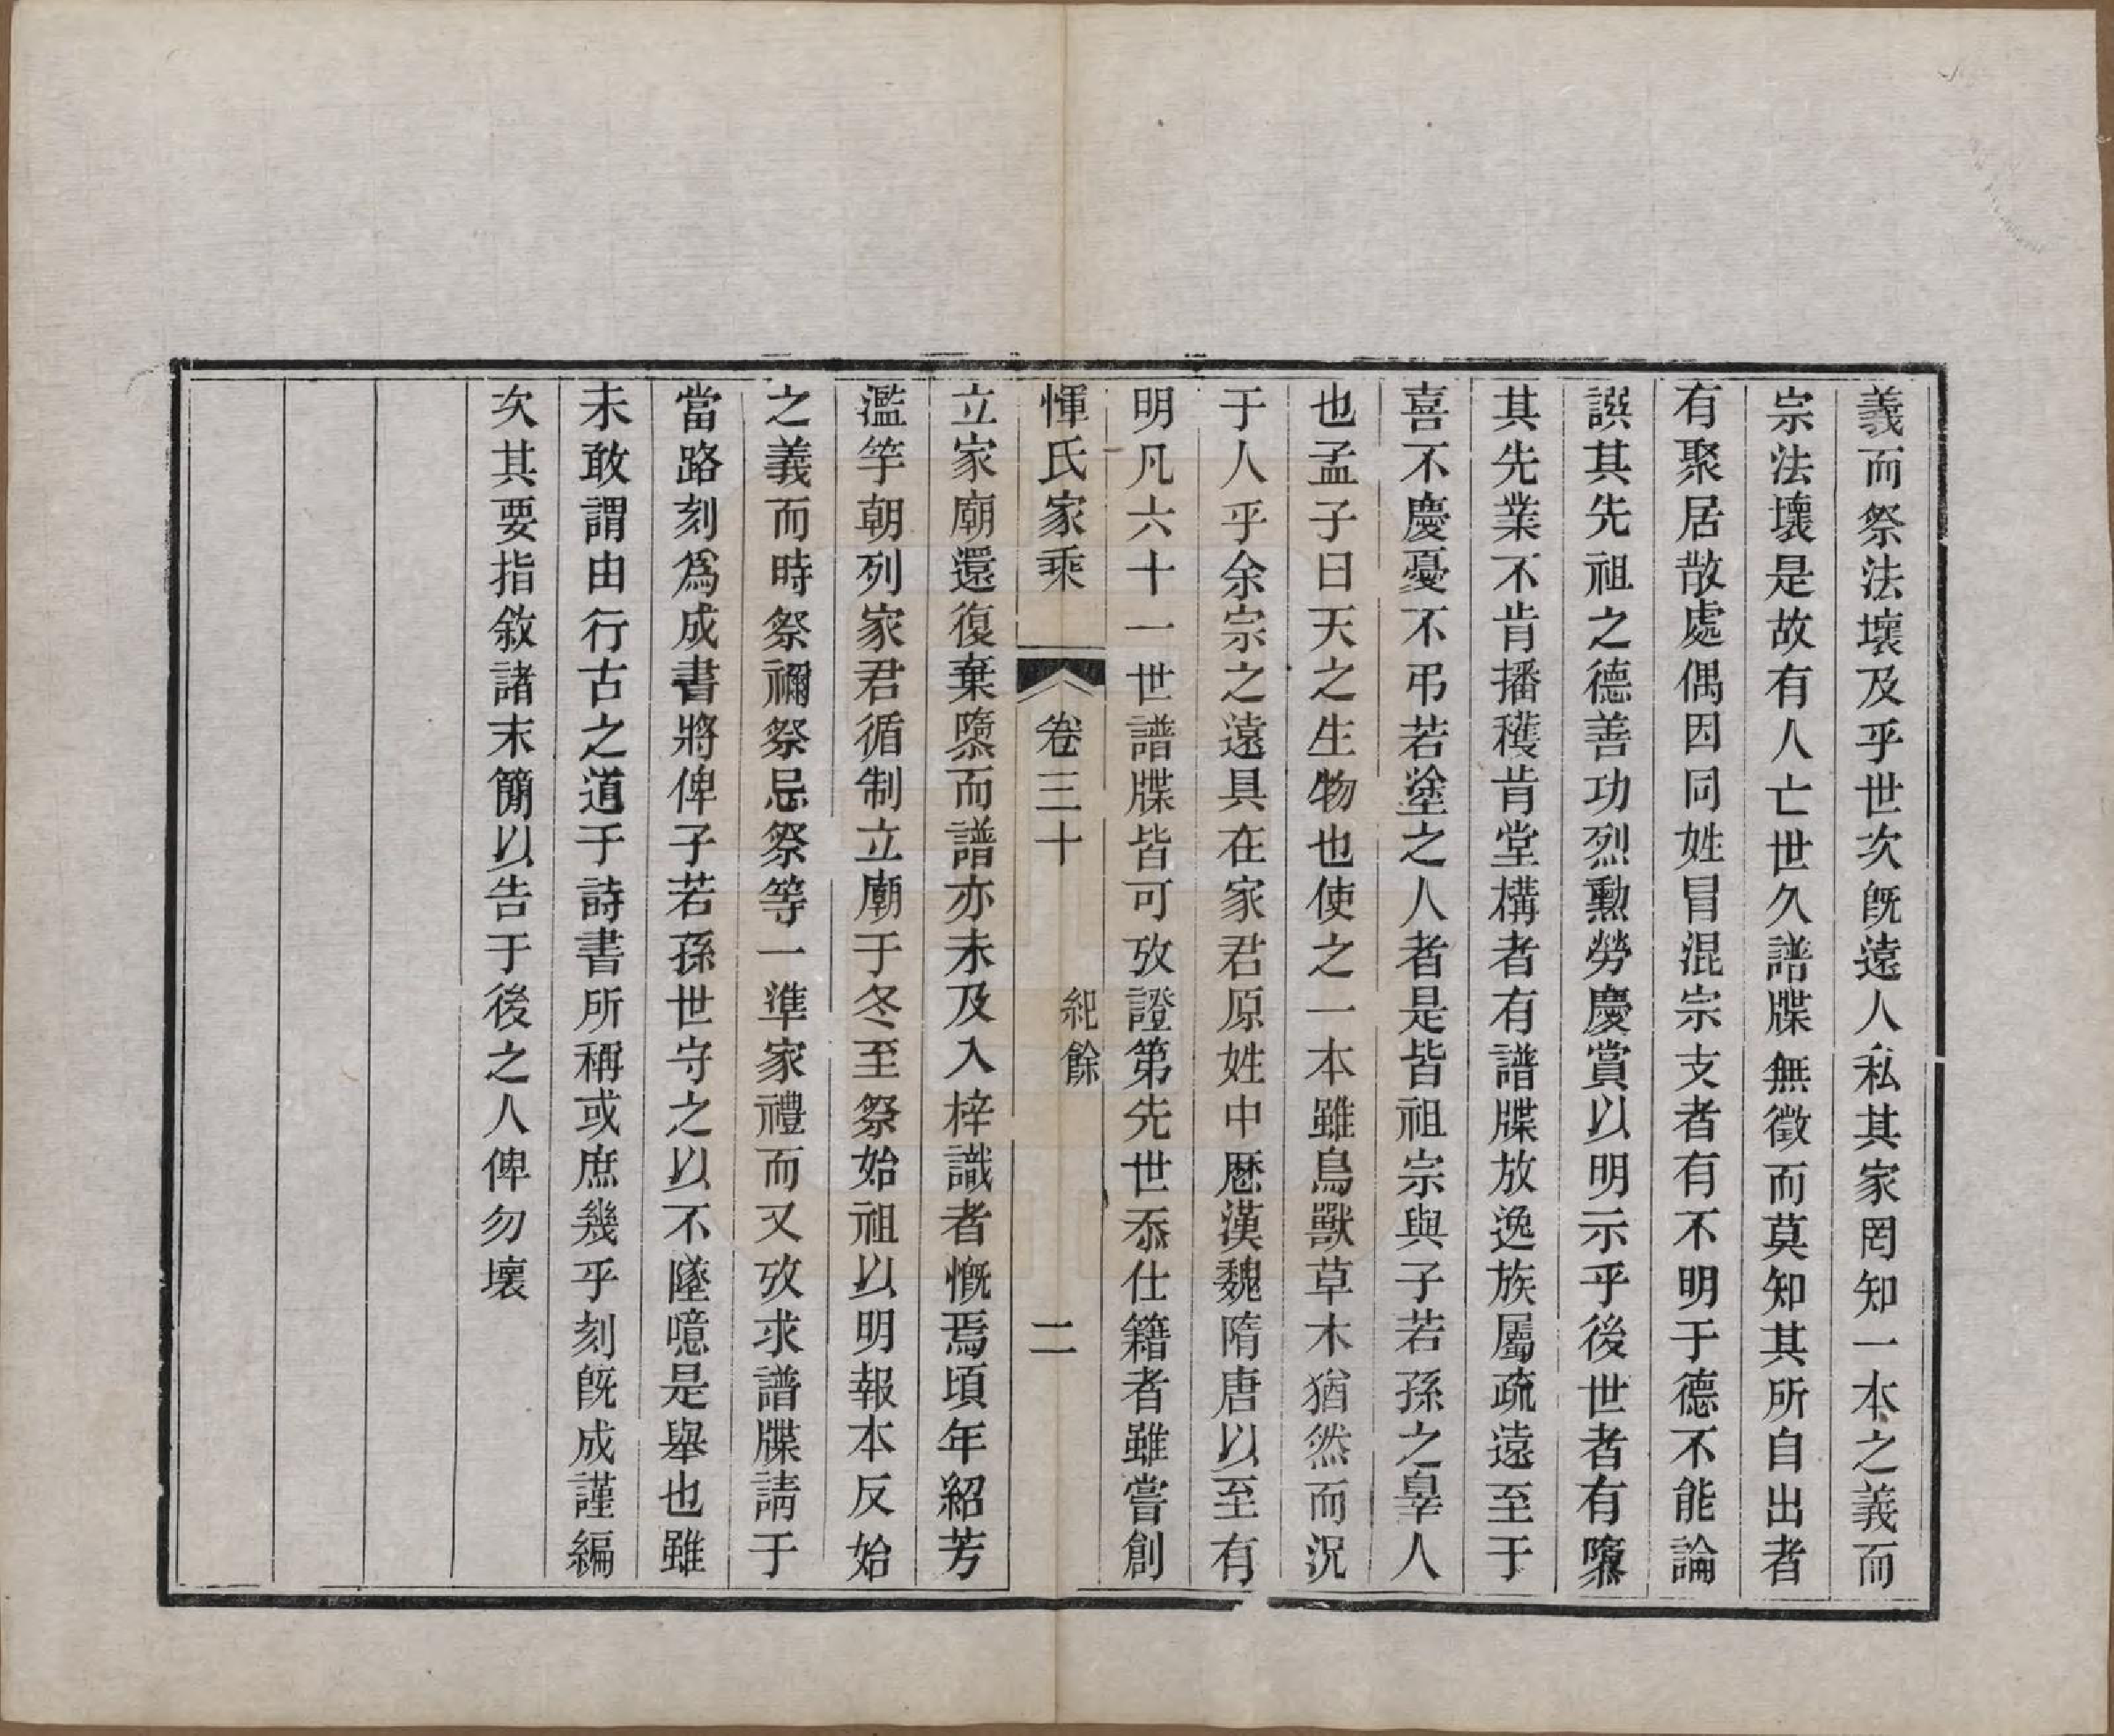 義而祭法壞及乎世次旣遠人私其家罔知一本之義而
宗法壞是故有人亡世久譜牒無徵而莫知其所自出者
有聚居散處偶因同姓冒混宗支者有不明于德不能論
譔其先祖之德善功烈勳勞慶賞以明示乎後世者有隳
其先業不肯播穫肯堂構者有譜牒放逸族屬疏遠至于
喜不慶憂不弔若塗之人者是皆祖宗與子若孫之辠人
也孟子曰天之生物也使之一本雖鳥獸草木猶然而況
于人乎余宗之遠具在家君原姓中歷漢魏隋唐以至有
明凡六十一世譜牒皆可攷證第先世忝仕籍者雖嘗創
惲氏家乘 卷三十 紀餘 二
立家廟還復棄隳而譜亦未及入梓識者慨焉頃年紹芳
濫竽朝列家君循制立廟于冬至祭始祖以明報本反始
之義而時祭禰祭忌祭等一準家禮而又攷求譜牒請于
當路刻爲成書將俾子若孫世守之以不墜噫是舉也雖
未敢謂由行古之道于詩書所稱或庶幾乎刻旣成謹編
次其要指敘諸末簡以告于後之人俾勿壞